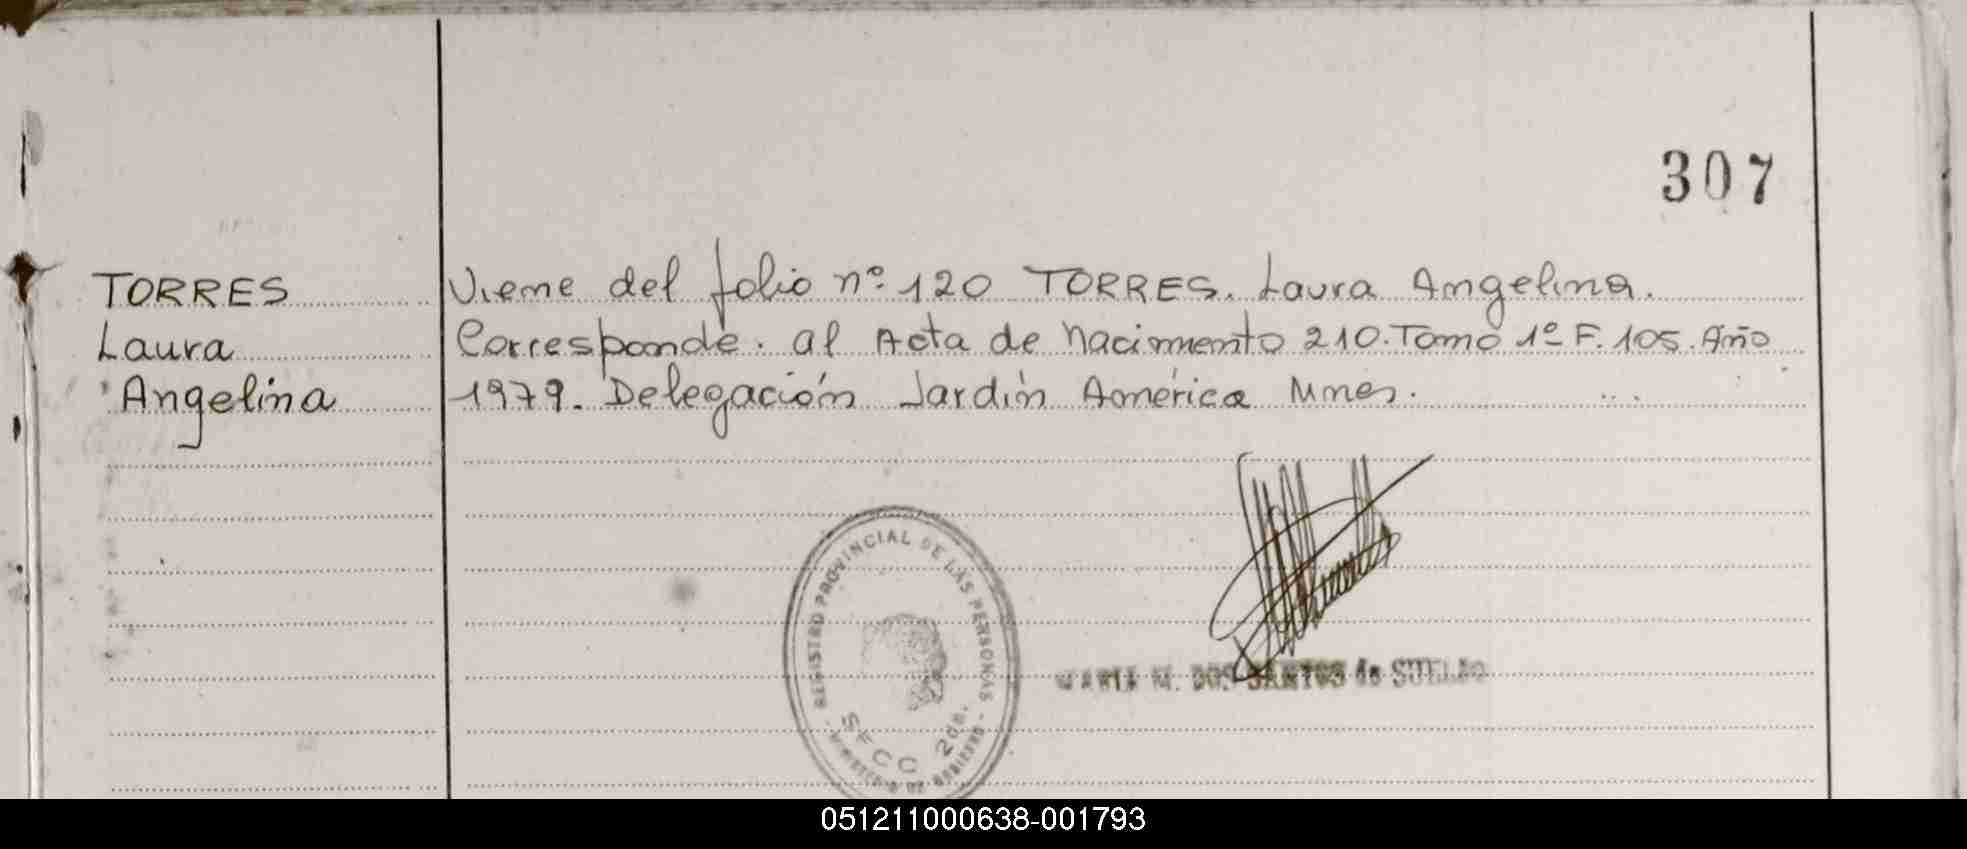 307
TORRES
Laura
Angelina
Viene del folio nº 120 TORRES. Laura Angelina.
Corresponde. al Acta de Nacimiento 210. Tomo 1º F. 105. Año
1979. Delegación Jardín América Mnes.
REGISTRO PROVINCIAL DE LAS PERSONAS
SECC 2da.
MINISTERIO DE GOBIERNO
MARIA M. DOS SANTOS de
051211000638-001793